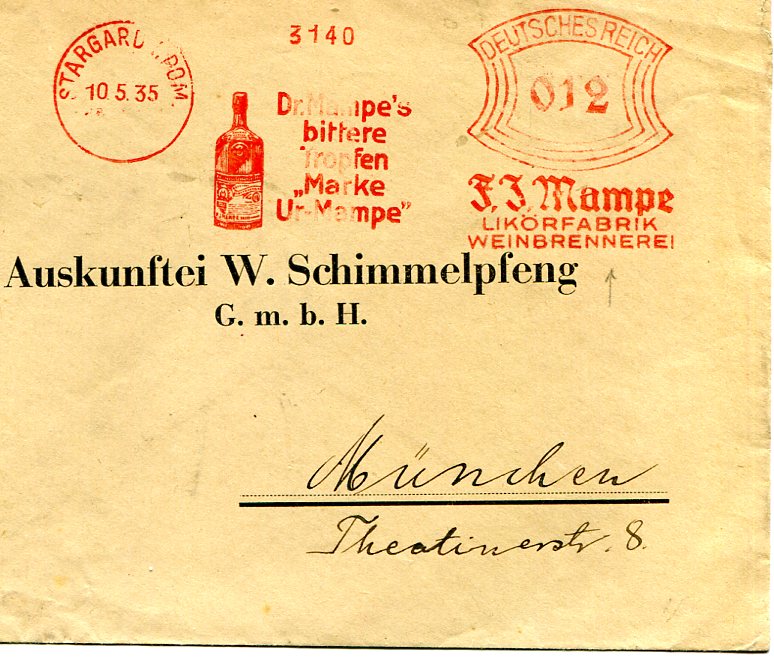 STARGARD i. POM.
10.5.35
3140
DEUTSCHES REICH
012
Dr. Mampe's
bittere
Tropfen
„Marke
Ur-Mampe”
F. J. Mampe
LIKÖRFABRIK
WEINBRENNEREI
Auskunftei W. Schimmelpfeng
G. m. b. H.
München
Theatinerstr. 8.